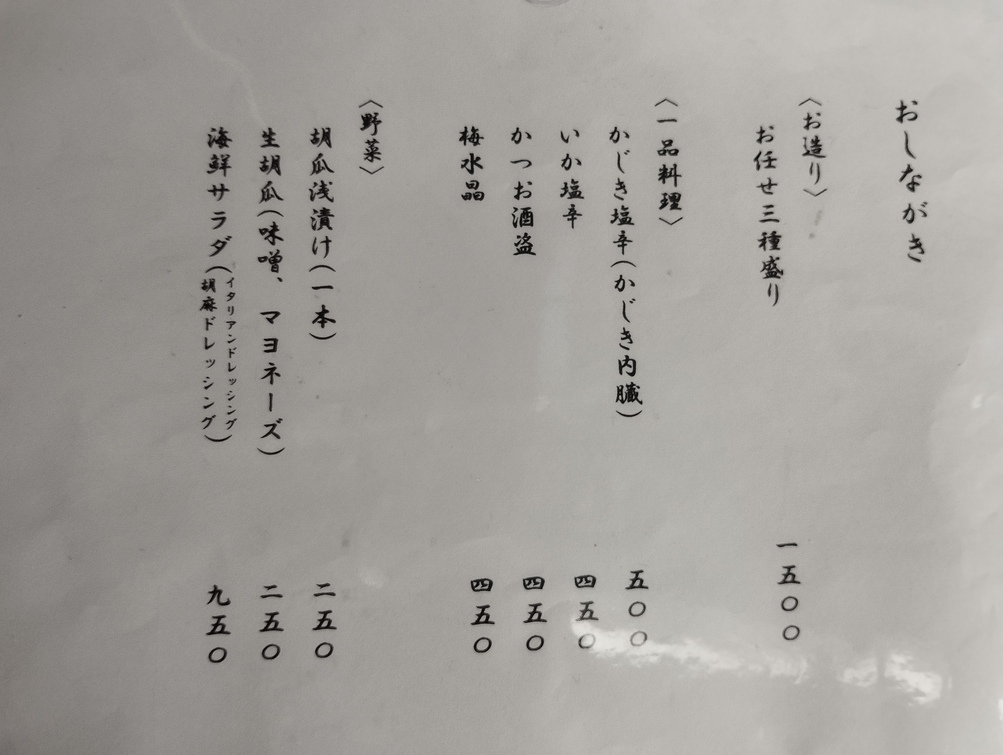 おしながき
〈お造り〉
お任せ三種盛り 一五〇〇
〈一品料理〉
かじき塩辛(かじき内臓) 五〇〇
いか塩辛 四五〇
かつお酒盗 四五〇
梅水晶 四五〇
〈野菜〉
胡瓜浅漬け(一本) 二五〇
生胡瓜(味噌、マヨネーズ) 二五〇
海鮮サラダ(イタリアンドレッシング
胡麻ドレッシング) 九五〇